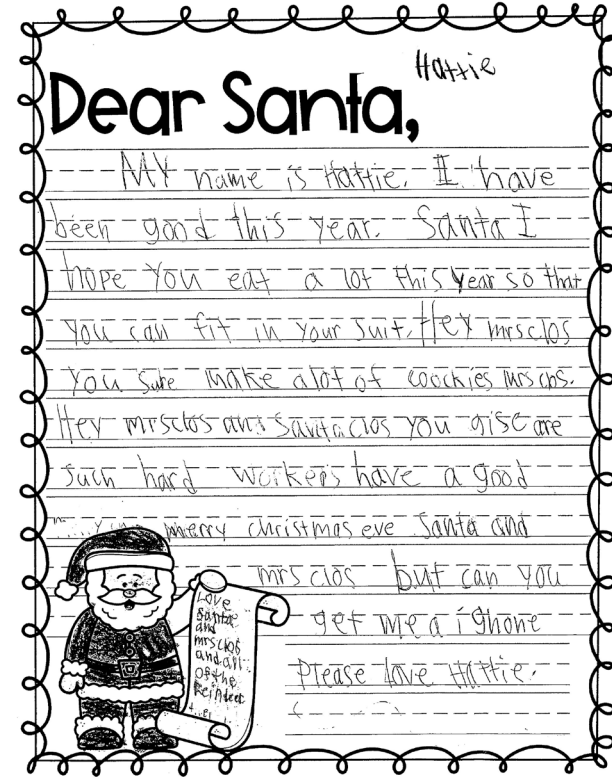 Hattie
Dear Santa,
MY name is Hattie. I have
been good this year. Santa I
hope you eat a lot this year so that
you can fit in your suit. Hey mrsclos
you sure make alot of coockies mrs clos.
Hey mrsclos and Santa clos you gise are
such hard workers have a good
merry christmas eve Santa and
mrs clos but can you
get me a iphone
Please love Hattie.
Love
Santae
and
mrsclos
and all
of the
Reindeer